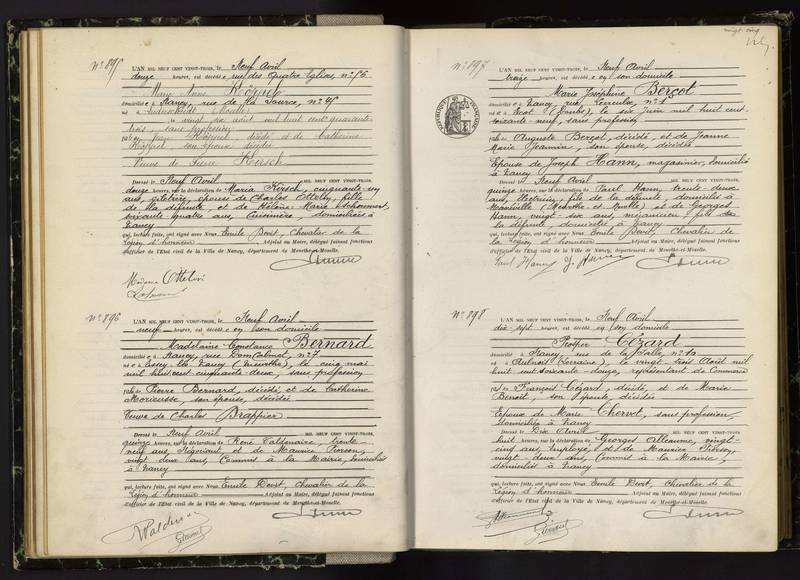 N° 895
L'AN MIL NEUF CENT VINGT-TROIS, le Neuf Avril
douze heures, est décédé e rue des Quatre Eglises, n°
Marie Anne
domicilié e à Nancy, rue de la Source, n°
le vingt août mil huit cent quarante
trois, sans profession
fille de Jean décédé et de Catherine
son épouse décédée
Veuve de Pierre Kirsch
Dressé le Neuf Avril MIL NEUF CENT VINGT-TROIS,
douze heures, sur la déclaration de Maria Kirsch, cinquante un
ans, giletière, épouse de Charles Ottelin, fille
de la défunte, et de Hélène Marie
soixante quatre ans, Cuisinière, domiciliées à
Nancy
qui, lecture faite, ont signé avec Nous Emile Devit, Chevalier de la
Légion d'honneur Adjoint au Maire, délégué faisant fonctions
d'officier de l'Etat civil de la Ville de Nancy, département de Meurthe-et-Moselle.
Madame Ottelin
N° 896
L'AN MIL NEUF CENT VINGT-TROIS, le Neuf Avril
neuf heures, est décédé e en son domicile
Madeleine Constance Bernard
domicilié e à Nancy, rue Dom Calmet, n° 7
né e à Essey les Nancy (Meurthe), le cinq mai
mil huit cent cinquante deux, sans profession
fille de Pierre Bernard, décédé et de Catherine
son épouse, décédée
Veuve de Charles Brappier
Dressé le Neuf Avril MIL NEUF CENT VINGT-TROIS,
quinze heures, sur la déclaration de René Valdenaire, trente
neuf ans, Négociant, et de Maurice Pierson,
vingt deux ans, Commis à la Mairie, domiciliés
à Nancy
qui, lecture faite, ont signé avec Nous Emile Devit, Chevalier de la
Légion d'honneur Adjoint au Maire, délégué faisant fonctions
d'officier de l'Etat civil de la Ville de Nancy, département de Meurthe-et-Moselle.
vingt-cinq
N° 897
L'AN MIL NEUF CENT VINGT-TROIS, le Neuf Avril
treize heures, est décédé e en son domicile
Marie Joséphine Berçot
domicilié e à Nancy, rue n° 1
né e à Ecot (Doubs), le six juin mil huit cent
soixante neuf, sans profession
fille de Auguste Berçot, décédé, et de Jeanne
Marie Jeannin, son épouse, décédée
Epouse de Joseph Hann, magasinier, domicilié
à Nancy
Dressé le Neuf Avril MIL NEUF CENT VINGT-TROIS,
quinze heures, sur la déclaration de Paul Hann, trente deux
ans, électricien, fils de la défunte domicilié à
(Meurthe et Moselle) et de Georges
Hann, vingt six ans, mécanicien, fils de
la défunte, domicilié à Nancy
qui, lecture faite, ont signé avec Nous Emile Devit, Chevalier de
la Légion d'honneur Adjoint au Maire, délégué faisant fonctions
d'officier de l'Etat civil de la Ville de Nancy, département de Meurthe-et-Moselle.
Paul Hann
N° 898
L'AN MIL NEUF CENT VINGT-TROIS, le Neuf Avril
dix sept heures, est décédé en son domicile
Prosper Cézard
domicilié à Nancy rue de la Salle, n° 12
né à Aulnois (Lorraine), le vingt trois Août mil
huit cent soixante-douze, représentant de Commerce
fils de François Cézard, décédé, et de Marie
Benoit, son épouse, décédée
Epoux de Marie Chervet, sans profession,
domiciliée à Nancy
Dressé le Dix Avril MIL NEUF CENT VINGT-TROIS,
huit heures, sur la déclaration de Georges Alleaume, vingt
cinq ans, Employé, et de Maurice Pierson,
vingt deux ans, Commis à la Mairie,
domiciliés à Nancy
qui, lecture faite, ont signé avec Nous Emile Devit, Chevalier de la
Légion d'honneur Adjoint au Maire, délégué faisant fonctions
d'officier de l'Etat civil de la Ville de Nancy, département de Meurthe-et-Moselle.